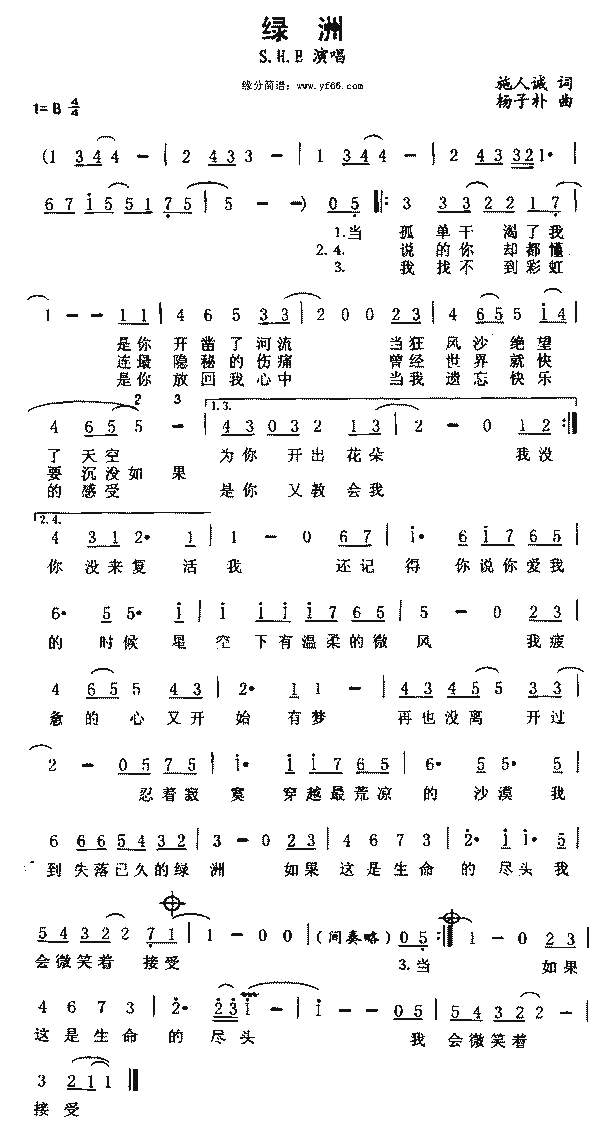 绿 洲
S.H.E 演唱
缘分简谱：www.yf66.com
施人诚 词
1=B 4/4
杨子朴 曲
(1 344 - | 2 433 3 - | 1 344 - | 2 43 321• |
67i55175 | 5 - -) 05 ‖: 3 33221 7 |
1.当 孤单干 渴了我
2.4. 说的你 却都懂
3. 我找不 到彩虹
1 - - 11 | 4 6 5 33 | 2 0 0 23 | 4 655 i4 |
是你 开凿了河流 当狂 风沙绝望
连最 隐秘的伤痛 曾经 世界就快
是你 放回我心中 当我 遗忘快乐
2 3
1.3.
4 655 - | 43032 13 | 2 - 0 12 :‖
了天空 为你 开出 花朵 我没
要沉没如果
的感受 是你 又教会我
2.4.
4 312• 1 | 1 - 0 67 | i• 6i765 |
你 没来复 活我 还记 得 你说你爱我
6• 55• i | i iii765 | 5 - 0 23 |
的 时候 星 空 下有温柔的微 风 我疲
4 655 43 | 2• 11 - | 43455 33 |
惫的 心又开 始 有梦 再也没离 开过
2 - 0575 | i• ii765 | 6• 55• 5 |
忍着寂 寞 穿越最荒凉 的 沙漠 我
6 665432 | 3 - 0 23 | 4 6 7 3 | 2• 1 1• 5 |
到 失落已久的绿 洲 如果 这是生命 的 尽头我
5 4 3 2 2 7 1 | 1 - 0 0 (间奏略) 0 5 :‖ 1 - 0 23 |
会微笑着 接受 3.当 如果
4 6 7 3 | 2• 23i - | i - - 05 | 54322 - |
这是生命 的 尽头 我 会微笑着
3 211 ‖
接受